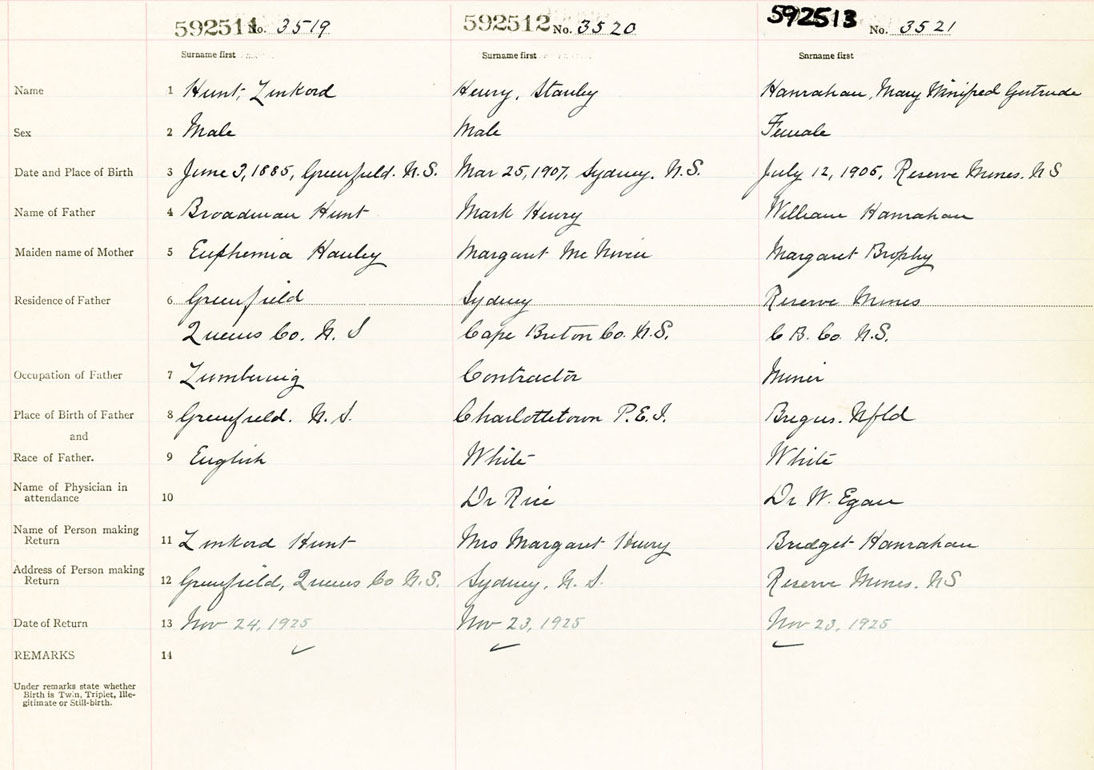 592511 No. 3519 592512 No. 3520 592513 No. 3521
Surname first Surname first Surname first
Name 1 Hunt, Zinkord Henry, Stanley Hanrahan, Mary Winifred Gertrude
Sex 2 Male Male Female
Date and Place of Birth 3 June 3, 1885, Greenfield. N.S. Mar 25, 1907, Sydney. N.S. July 12, 1905, Reserve Mines. N S
Name of Father 4 Broadman Hunt Mark Henry William Hanrahan
Maiden name of Mother 5 Euphemia Hanley Margaret Mc Niven Margaret Brophy
Residence of Father 6 Greenfield Sydney Reserve Mines
Queens Co. N. S Cape Breton Co. N.S. C B. Co. N.S.
Occupation of Father 7 Lumbering Contractor Miner
Place of Birth of Father 8 Greenfield. N. S. Charlottetown P.E.I. Brigus. Nfld
and
Race of Father. 9 English White White
Name of Physician in
attendance 10 Dr Rice Dr W. Egan
Name of Person making
Return 11 Zinkord Hunt Mrs Margaret Henry Bridget Hanrahan
Address of Person making
Return 12 Greenfield, Queens Co N.S. Sydney, N. S. Reserve Mines. N S
Date of Return 13 Nov 24, 1925 Nov 23, 1925 Nov 23, 1925
REMARKS 14
Under remarks state whether
Birth is Twin, Triplet, Ille-
gitimate or Still-birth.